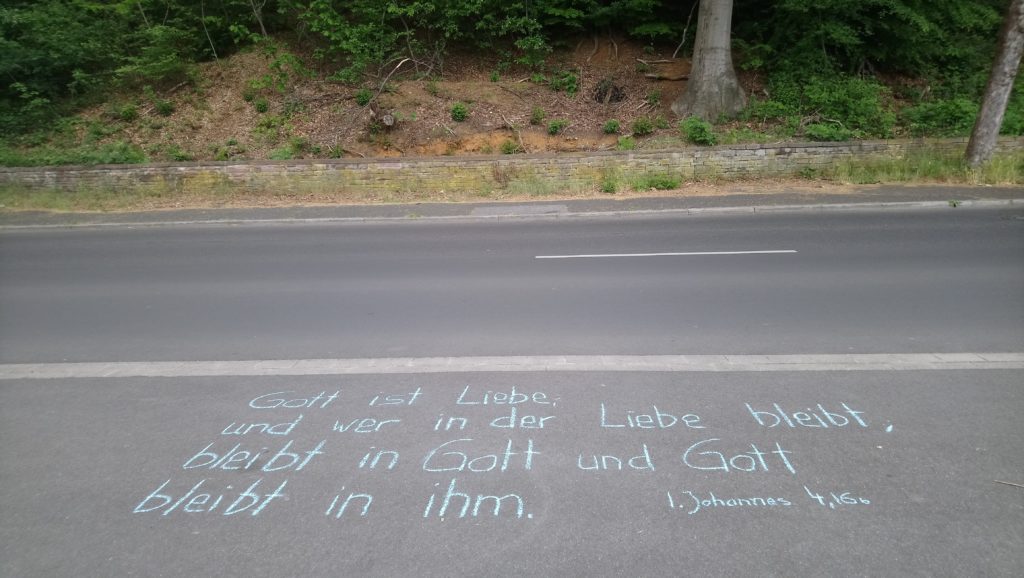 Gott ist Liebe,
und wer in der Liebe bleibt,
bleibt in Gott und Gott
bleibt in ihm.
1. Johannes 4,16b